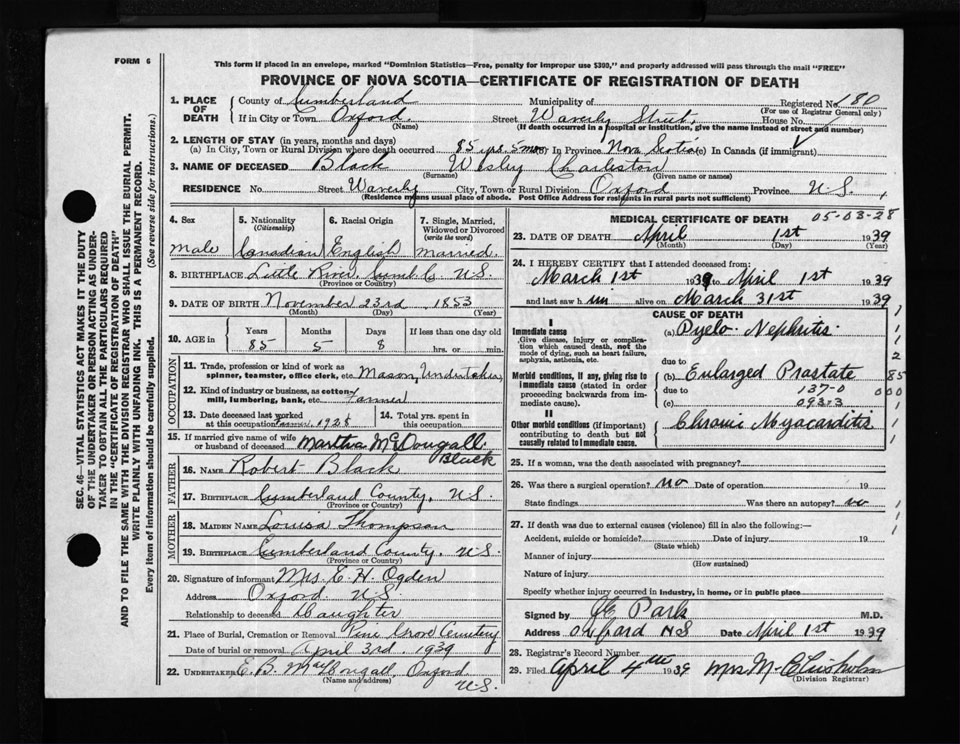 FORM 6
This form if placed in an envelope, marked "Dominion Statistics—Free, penalty for improper use $300," and properly addressed will pass through the mail "FREE"
PROVINCE OF NOVA SCOTIA—CERTIFICATE OF REGISTRATION OF DEATH
SEC. 46—VITAL STATISTICS ACT MAKES IT THE DUTY
OF THE UNDERTAKER OR PERSON ACTING AS UNDER-
TAKER TO OBTAIN ALL THE PARTICULARS REQUIRED
IN THE "CERTIFICATE OF REGISTRATION OF DEATH"
AND TO FILE THE SAME WITH THE DIVISION REGISTRAR WHO SHALL ISSUE THE BURIAL PERMIT.
WRITE PLAINLY WITH UNFADING INK. THIS IS A PERMANENT RECORD.
Every item of information should be carefully supplied. (See reverse side for instructions.)
1. PLACE OF DEATH
County of Cumberland Municipality of Registered No. 180
(For use of Registrar General only)
If in City or Town Oxford Street Waverly Street, House No.
(Name) (If death occurred in a hospital or institution, give the name instead of street and number)
2. LENGTH OF STAY (in years, months and days)
(a) In City, Town or Rural Division where death occurred 85 yrs. 5 mos In Province Nova Scotia (c) In Canada (if immigrant)
3. NAME OF DECEASED Black Wesley Charleston
(Surname) (Given name or names)
RESIDENCE No. Street Waverly City, Town or Rural Division Oxford Province N.S.
(Residence means usual place of abode. Post Office Address for residents in rural parts not sufficient)
4. Sex male
5. Nationality (Citizenship) Canadian
6. Racial Origin English
7. Single, Married, Widowed or Divorced (write the word) Married.
8. BIRTHPLACE Little River Cumb. C. N.S.
(Province or Country)
9. DATE OF BIRTH November 23rd 1853
(Month) (Day) (Year)
10. AGE in Years 85 Months 5 Days 8 If less than one day old hrs. or min.
OCCUPATION
11. Trade, profession or kind of work as spinner, teamster, office clerk, etc. Mason, Undertaker
12. Kind of industry or business, as cotton-mill, lumbering, bank, etc. Farmer
13. Date deceased last worked at this occupation 1925
14. Total yrs. spent in this occupation
15. If married give name of wife or husband of deceased Martha McDougall Black
FATHER
16. NAME Robert Black
17. BIRTHPLACE Cumberland County, N.S.
(Province or Country)
MOTHER
18. MAIDEN NAME Louisa Thompson
19. BIRTHPLACE Cumberland County, N.S.
(Province or Country)
20. Signature of informant Mrs. E. H. Ogden
Address Oxford N.S.
Relationship to deceased Daughter
21. Place of Burial, Cremation or Removal Pine Grove Cemetery
Date of burial or removal April 3rd. 1939
22. UNDERTAKER E. B. MacDougall, Oxford N.S.
(Name and address)
MEDICAL CERTIFICATE OF DEATH
05-03-28
23. DATE OF DEATH April 1st 1939
(Month) (Day) (Year)
24. I HEREBY CERTIFY that I attended deceased from:
March 1st 1939 to April 1st 1939
and last saw him alive on March 31st 1939
CAUSE OF DEATH
I
Immediate cause
Give disease, injury or complication which caused death, not the mode of dying, such as heart failure, asphyxia, asthenia, etc.
(a) Pyelo-Nephritis
due to
Morbid conditions, if any, giving rise to immediate cause (stated in order proceeding backwards from immediate cause).
(b) Enlarged Prostate
due to 137-0
(c) 093-3
II
Other morbid conditions (if important) contributing to death but not causally related to immediate cause.
Chronic Myocarditis
1
1
1
2
85
000
1
1
25. If a woman, was the death associated with pregnancy?
26. Was there a surgical operation? No Date of operation 19
State findings Was there an autopsy? no
27. If death was due to external causes (violence) fill in also the following:—
Accident, suicide or homicide? Date of injury 19
(State which)
Manner of injury
(How sustained)
Nature of injury
Specify whether injury occurred in industry, in home, or in public place
Signed by Park M.D.
Address Oxford NS Date April 1st 1939
28. Registrar's Record Number
29. Filed April 4th 1939 Mrs M. Chisholm
(Division Registrar)